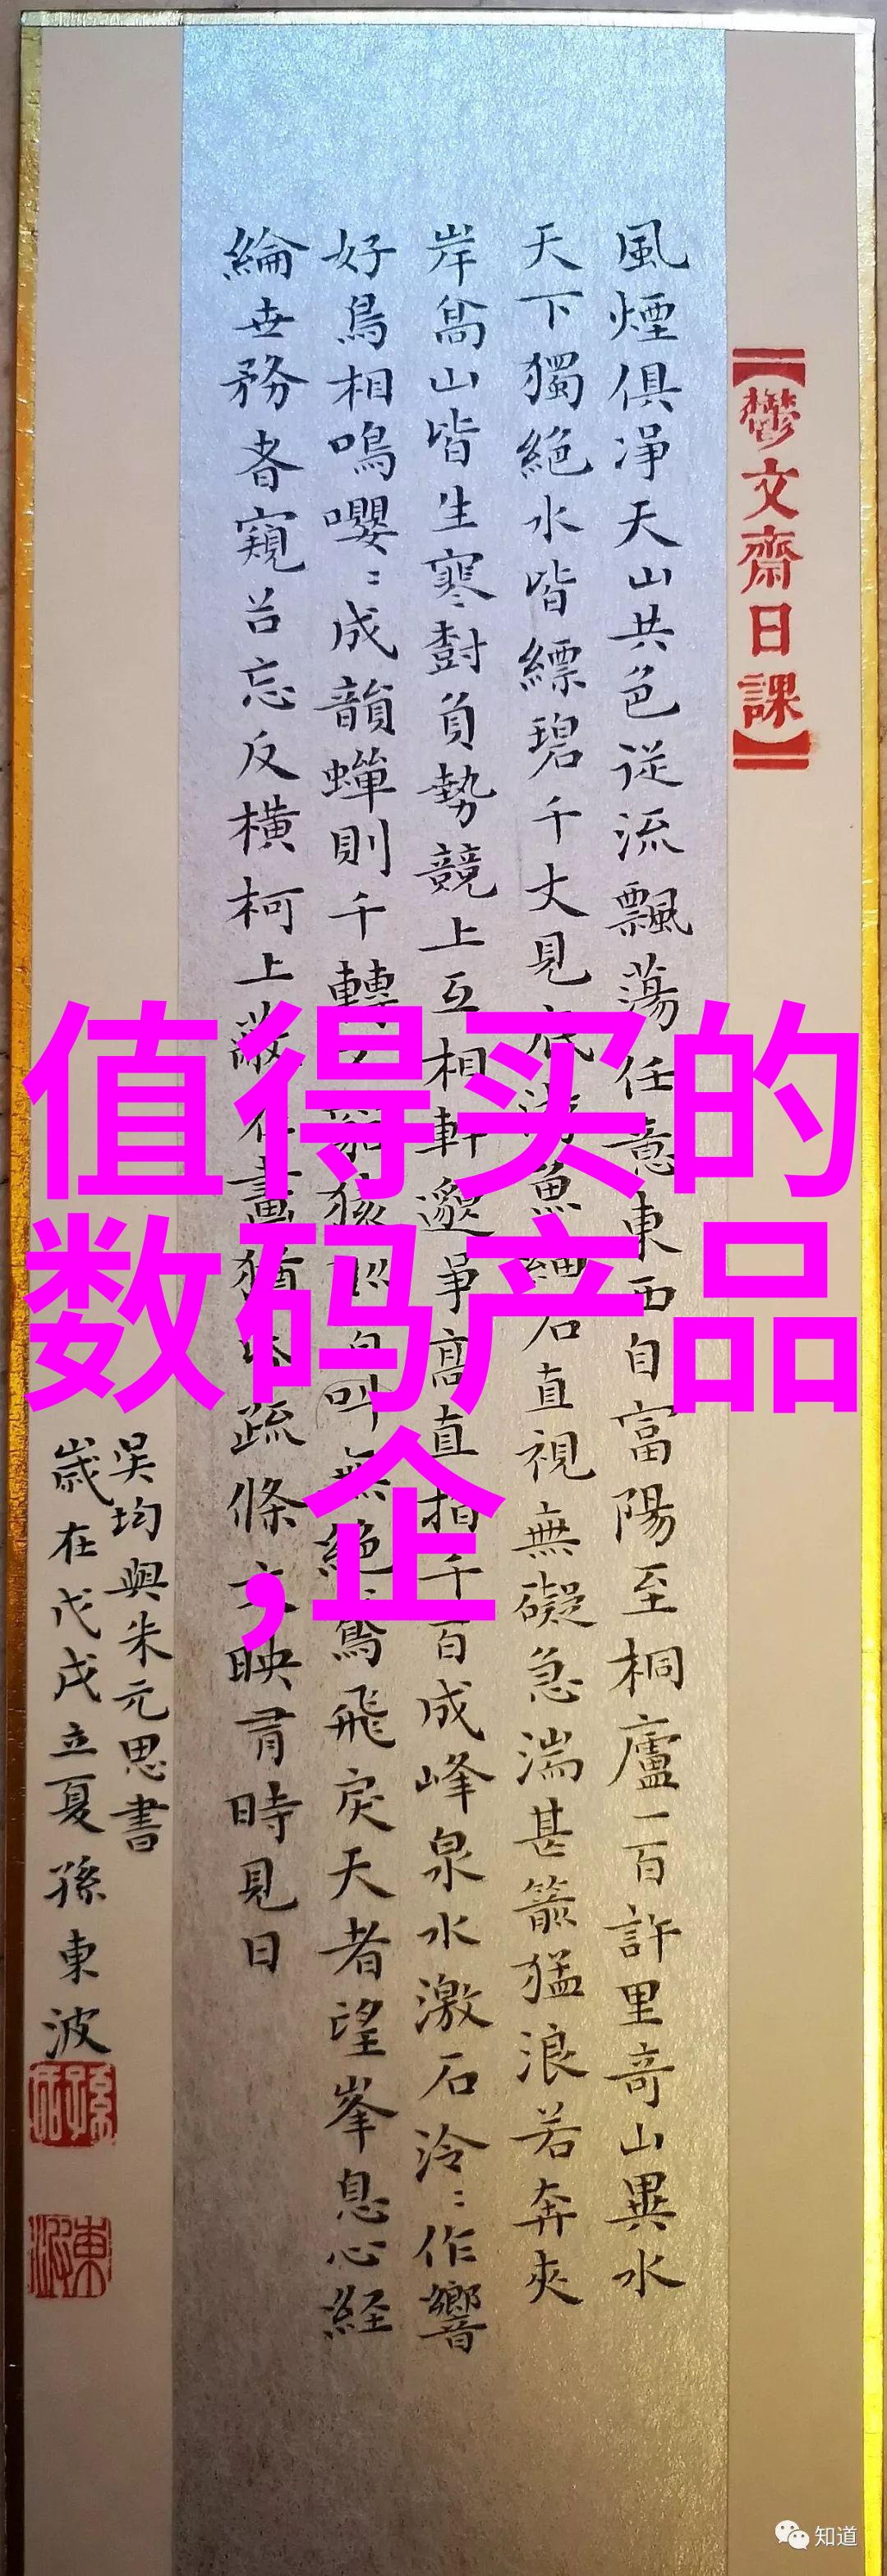 【鬱文齋日課】
風煙俱凈天山共色從流飄蕩任意東西自富陽至桐廬一百許里奇山異水
天下獨絕水皆縹碧千丈見底游魚細石直視無礙急湍甚箭猛浪若奔夾
岸高山皆生寒樹負勢競上互相軒邈爭高直指千百成峰泉水激石泠〻作響
好鳥相鳴嚶〻成韻蟬則千轉猿叫無絕鳶飛戾天者望峯息心経
綸世務者窺谷忘反橫柯上蔽在晝猶疏條交映有時見日
吳均與朱元思書
歲在戊戌立夏孫東波
值得买的
数码产品
,企
知道